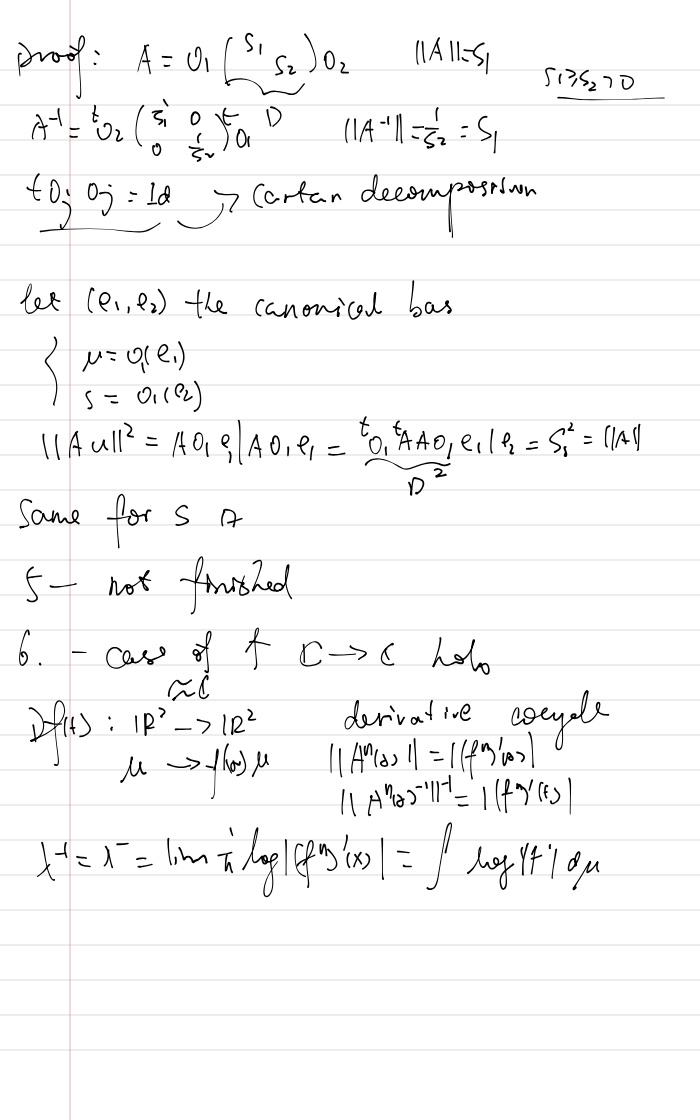 proof: A = O₁ (S₁ S₂) O₂ ||A|| = S₁ S₁ ≥ S₂ > 0
A⁻¹ = ᵗO₂ (1/S₁ 0 0 1/S₂) ᵗO₁ D ||A⁻¹|| = 1/S₂ = S₁
ᵗOj Oj = Id → Cartan decomposition
let (e₁, e₂) the canonical bas
{ u = O₁(e₁)
s = O₁(e₂)
||A u||² = A O₁ e₁ | A O₁ e₁ = ᵗO₁ ᵗA A O₁ e₁ | e₂ = S₁² = ||A||
D²
Same for S
5 — not finished
6. - case of f ℂ → ℂ holo
≈ ℂ
Df(x) : ℝ² → ℝ² derivative cocycle
u → f'(x) u ||Aⁿ(x)|| = |(fⁿ)'(x)|
||Aⁿ(x)⁻¹||⁻¹ = |(fⁿ)'(x)|
λ⁺ = λ⁻ = lim 1/n log |(fⁿ)'(x)| = ∫ log |f'| dμ